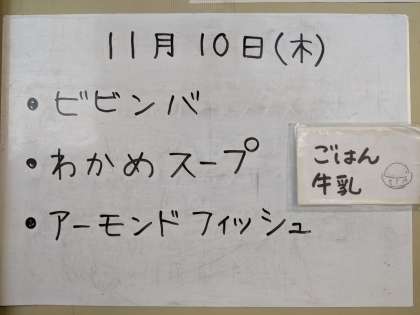 11月10日(木)
• ビビンバ
• わかめスープ
• アーモンドフィッシュ
ごはん
牛乳